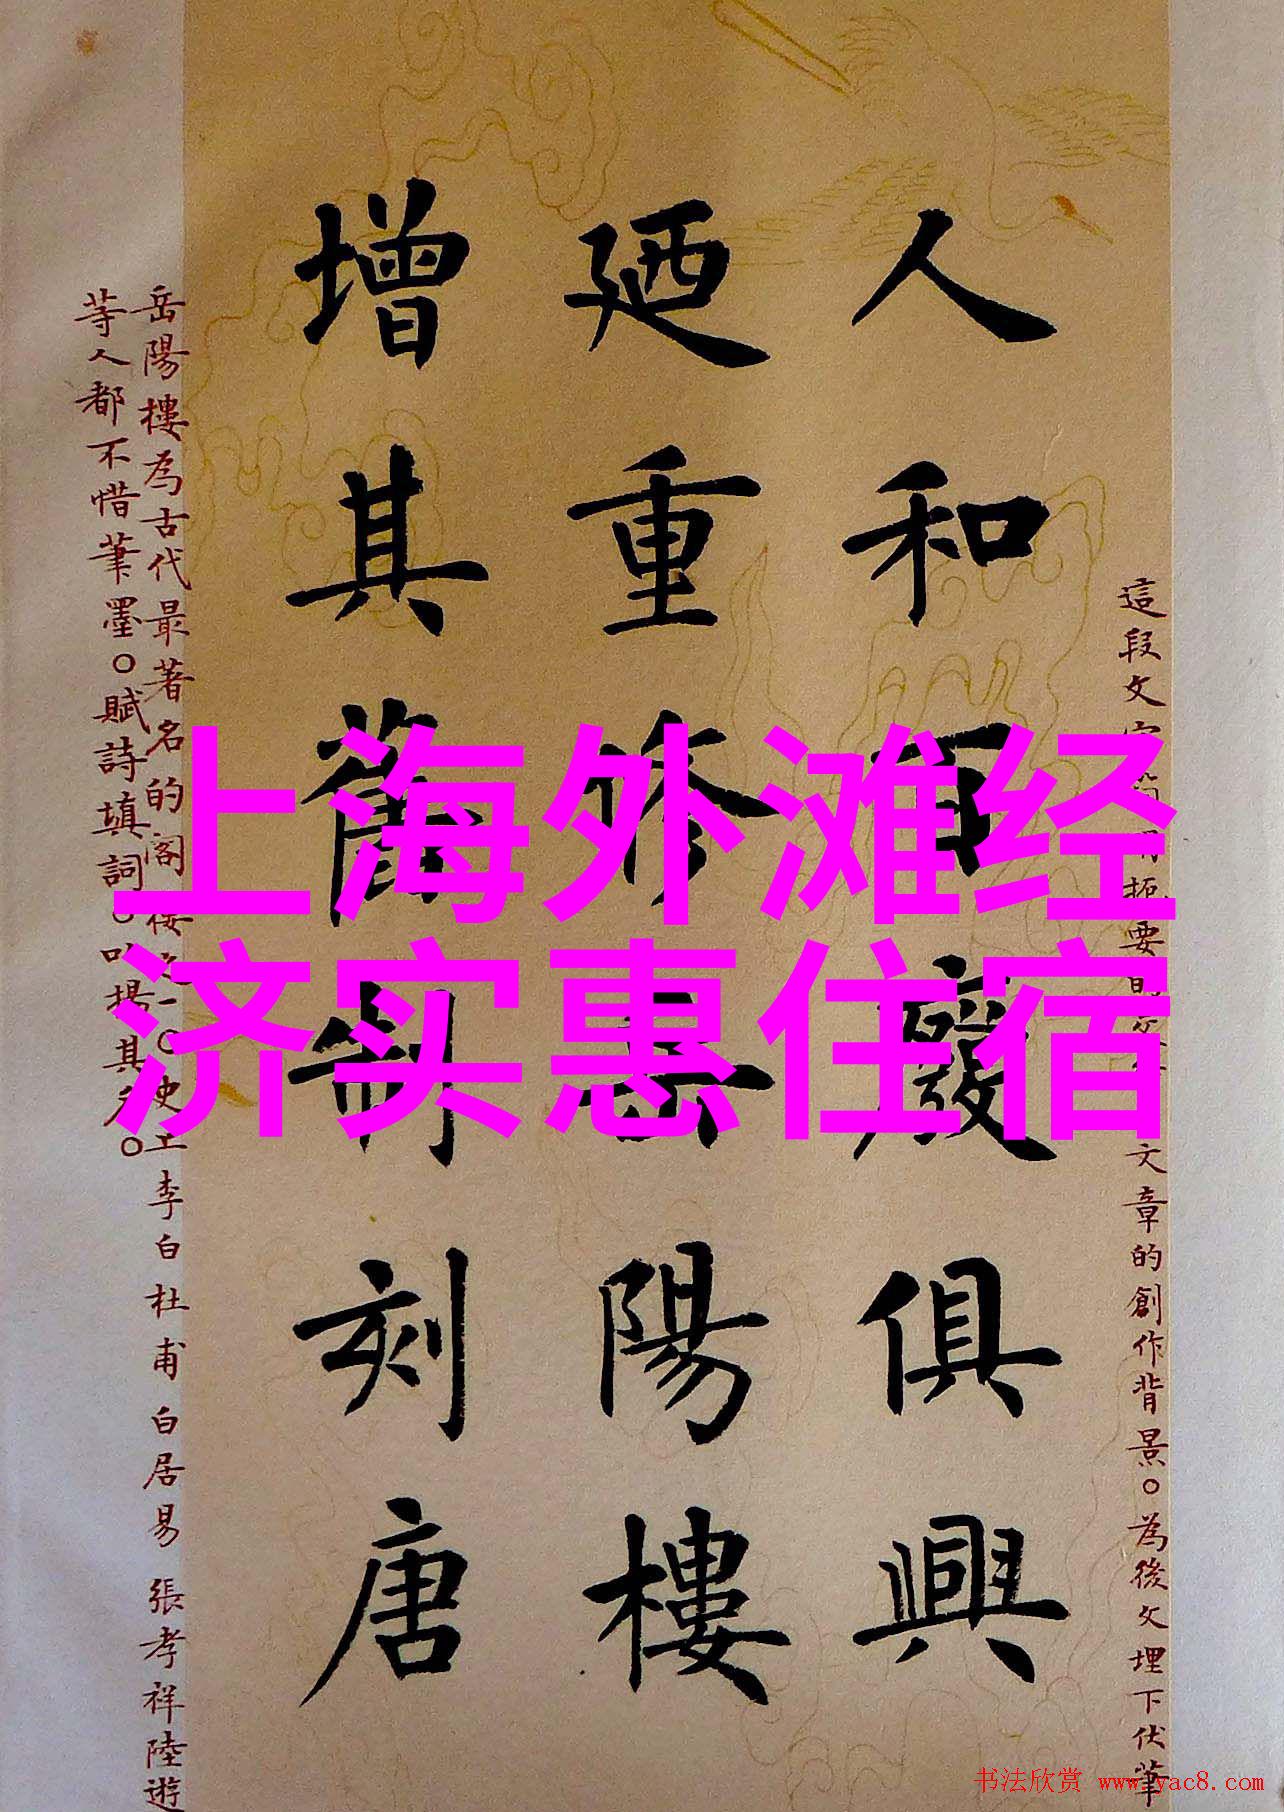 人和百廢俱興
廼重修岳陽樓
增其舊制刻唐
上海外滩经
济实惠住宿
這段文字
要
文章的創作背景。為後文埋下伏筆
岳陽樓為古代最著名的阁樓之一。史上李白杜甫白居易張孝祥陸遊
等人都不惜筆墨。賦詩填詞。吟揚其名。
书法欣赏 www.yac8.com